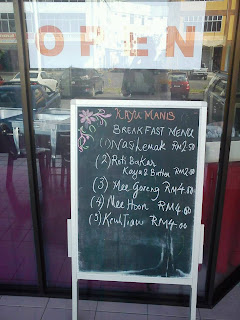 OPEN
KAYU MANIS
BREAKFAST MENU
(1) Nasi Lemak RM2.50
(2) Roti Bakar
Kaya & Butter RM2.00
(3) Mee Goreng RM4.00
(4) Mee Hoon RM4.00
(5) Kueh Tiaw RM4.00